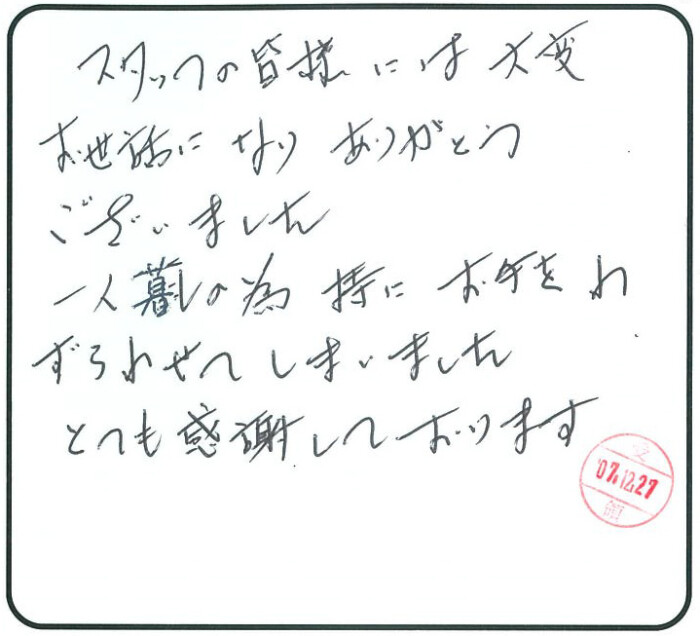 スタッフの皆様には大変
お世話になりありがとう
ございました
一人暮しの為 特にお手をわ
ずらわせてしまいました
とても感謝しております
受
'07.12.27
領